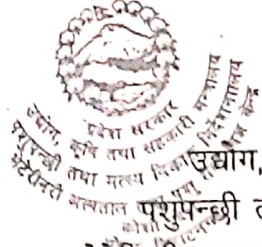 प्रदेश सरकार
उद्योग, कृषि तथा सहकारी मन्त्रालय
पशुपन्छी तथा मत्स्य विकास निर्देशनालय
भेटेरीनरी अस्पताल
उद्योग,
पशुपन्छी त